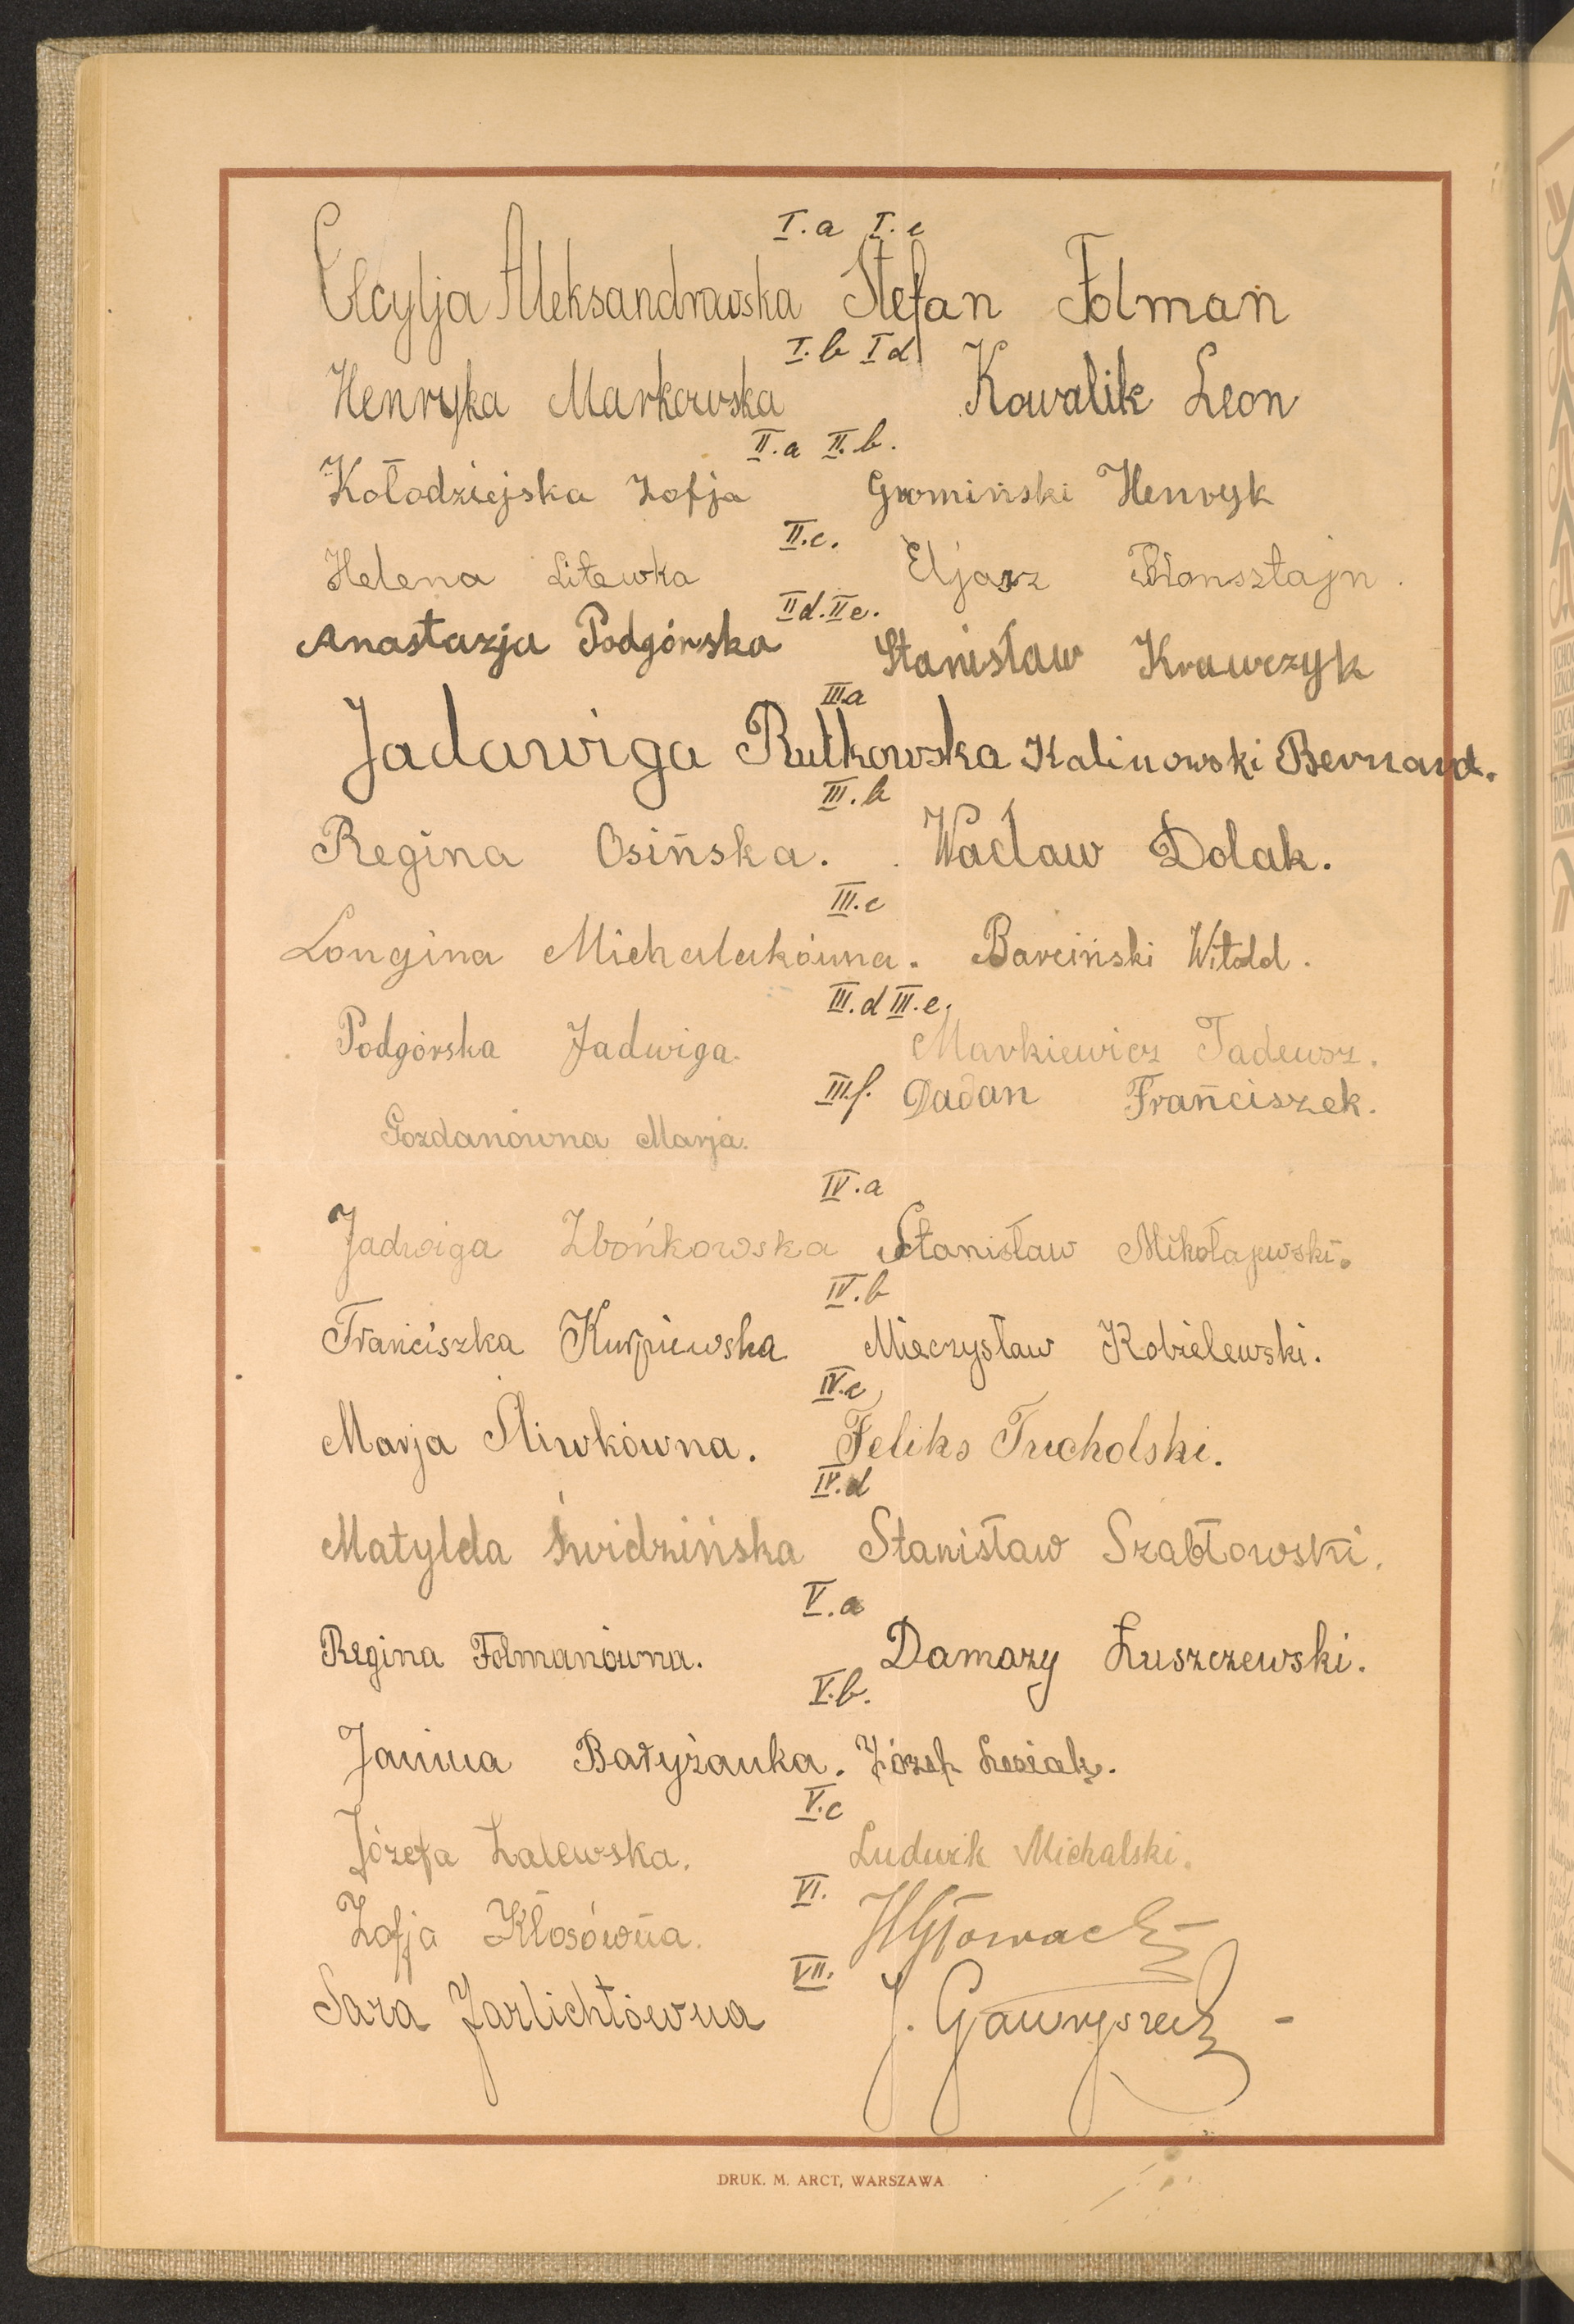 I.a I.c
Cecylja Aleksandrowska Stefan Folman
I.b I d
Henryka Markowska Kowalik Leon
II.a II.b.
Kołodziejska Zofja Gromiński Henryk
II.c.
Helena Litewka Eljasz Bronsztajn.
II d. II e.
Anastazja Podgórska Stanisław Krawczyk
III.a
Jadawiga Rutkowska Kalinowski Bernard.
III.b
Regina Osińska. Wacław Dolak.
III.c
Longina Michalakówna. Barciński Witold.
III.d III.e.
Podgórska Jadwiga. Markiewicz Tadeusz.
III.f. Dadan Franciszek.
Gozdanówna Marja.
IV.a
Jadwiga Zbońkowska Stanisław Mikołajewski.
IV.b
Franciszka Kurpiewska Mieczysław Kobielewski.
IV.c
Marja Śliwkówna. Feliks Tucholski.
IV.d
Matylda Świdzińska Stanisław Szabłowski.
V.a
Regina Folmanówna. Damazy Łuszczewski.
V.b.
Janina Batyżanka. Józef Lesiak.
V.c
Józefa Zalewska. Ludwik Michalski.
VI.
Zofja Kłosówna. Głowacki
VII.
Sara Jarlichtówna J. Gawryszecki
DRUK. M. ARCT, WARSZAWA